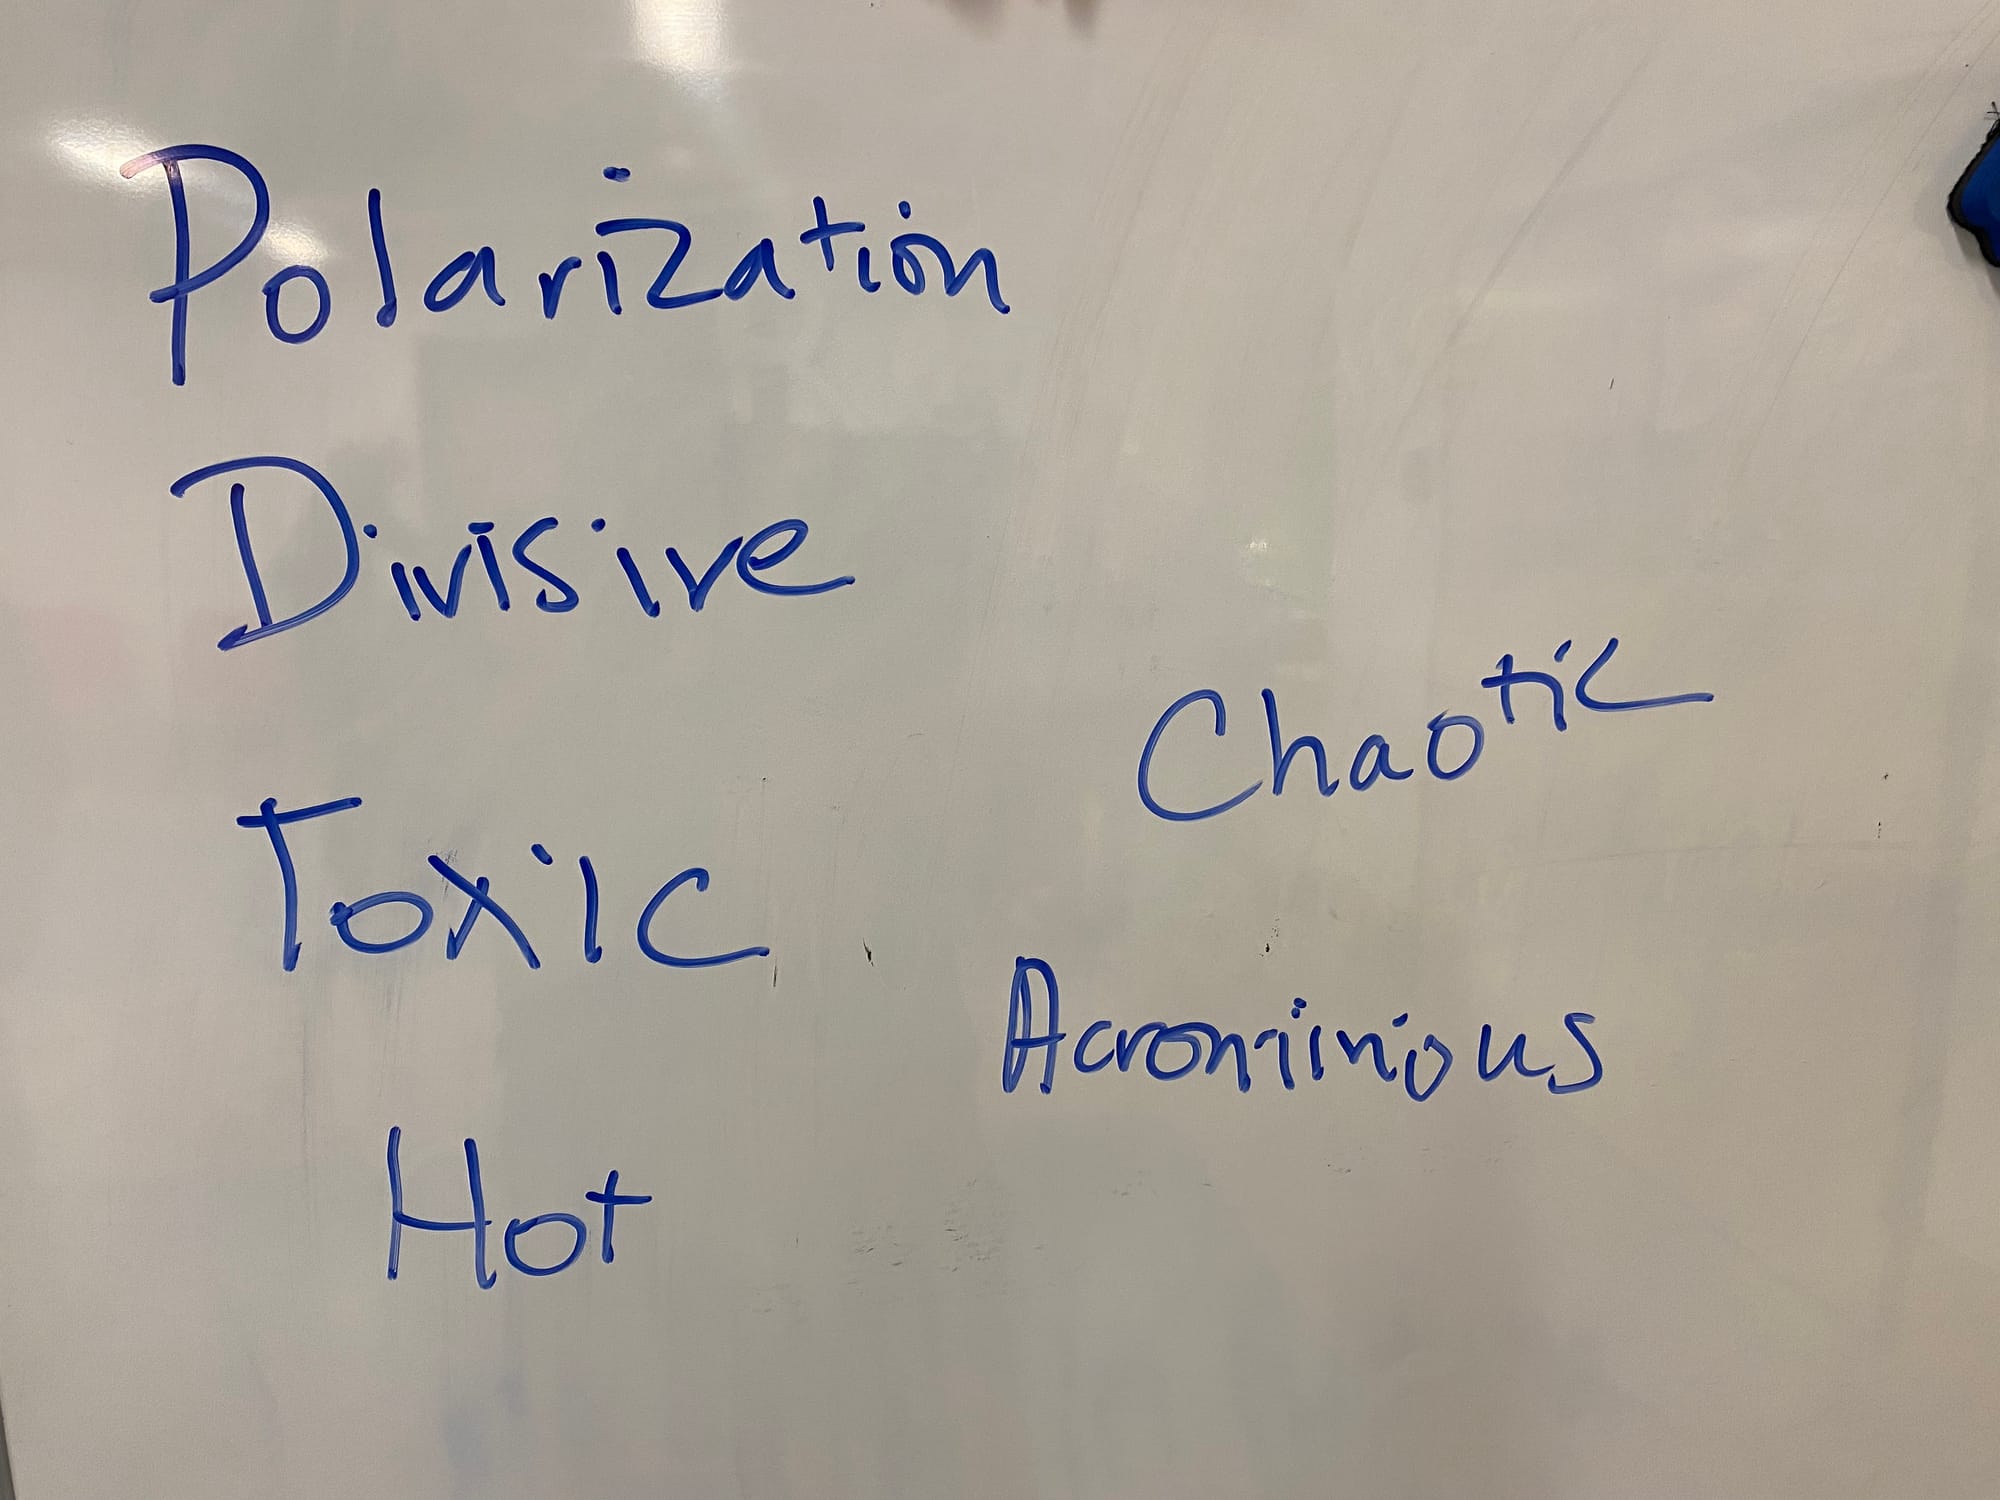 Polarization
Divisive
Toxic
Hot
Chaotic
Acrominious